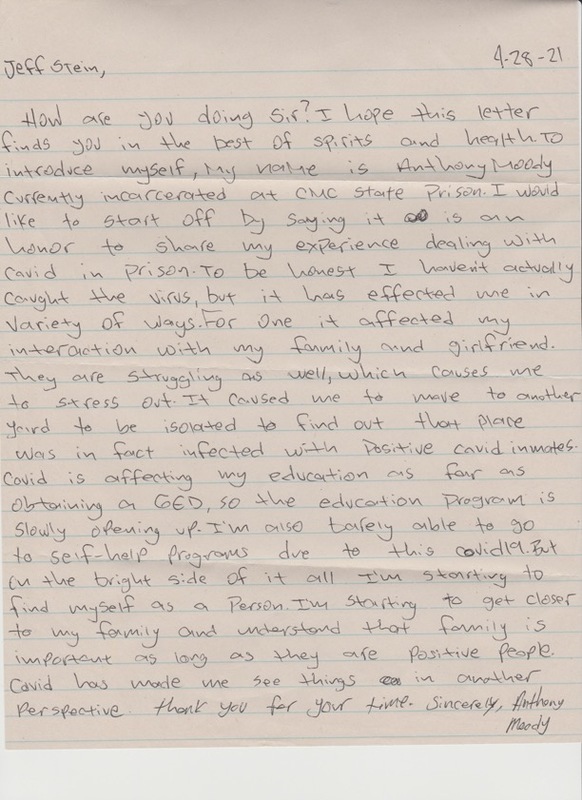 4-28-21
Jeff Stein,
How are you doing sir? I hope this letter
finds you in the best of spirits and health. To
introduce myself, my name is Anthony Moody
currently incarcerated at CMC State Prison. I would
like to start off by saying it is an
honor to share my experience dealing with
Covid in prison. To be honest I haven't actually
caught the virus, but it has effected me in
variety of ways. For one it affected my
interaction with my family and girlfriend.
They are struggling as well, which causes me
to stress out. It caused me to move to another
yard to be isolated to find out that place
was in fact infected with positive covid inmates.
Covid is affecting my education as far as
obtaining a GED, so the education program is
slowly opening up. I'm also barely able to go
to self-help programs due to this covid19. But
on the bright side of it all I'm starting to
find myself as a person. I'm starting to get closer
to my family and understand that family is
important as long as they are positive people.
Covid has made me see things in another
perspective. thank you for your time. Sincerely, Anthony
Moody